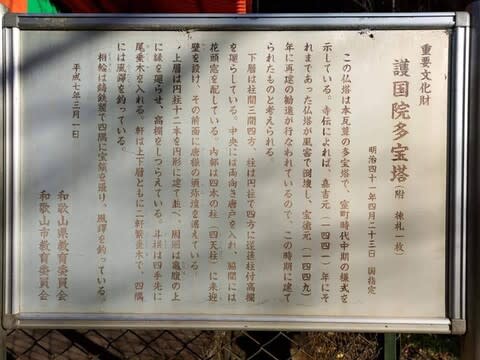 重要文化財
護国院多宝塔（附 棟札一枚）
明治四十一年四月二十三日 国指定
この仏塔は本瓦葺の多宝塔で、室町時代中期の様式を
示している。寺伝によれば、嘉吉元（一四四一）年にそ
れまであった仏塔が風害で倒壊し、宝徳元（一四四九）
年に再建の勧進が行なわれているので、この時期に建て
られたものと考えられる
下層は柱間三間四方、柱は円柱で四方に逆蓮柱付高欄
を廻らしている。中央には両向き唐戸を入れ、脇間には
花頭窓を配している。内部は四本の柱（四天柱）に来迎
壁を設け、その前面に唐様の須弥壇を構えている。
上層は円柱十二本を円形に建て並べ、周廻は亀腹の上
に縁を廻らせ、高欄をしつらえている。斗拱は四手先に
尾垂木を入れる。軒は上下層ともに二軒繁垂木で、四隅
には風鐸を釣っている。
相輪は鋳鉄製で四隅に宝鎖を張り、風鐸を釣っている。
平成七年三月一日
和歌山県教育委員会
和歌山市教育委員会